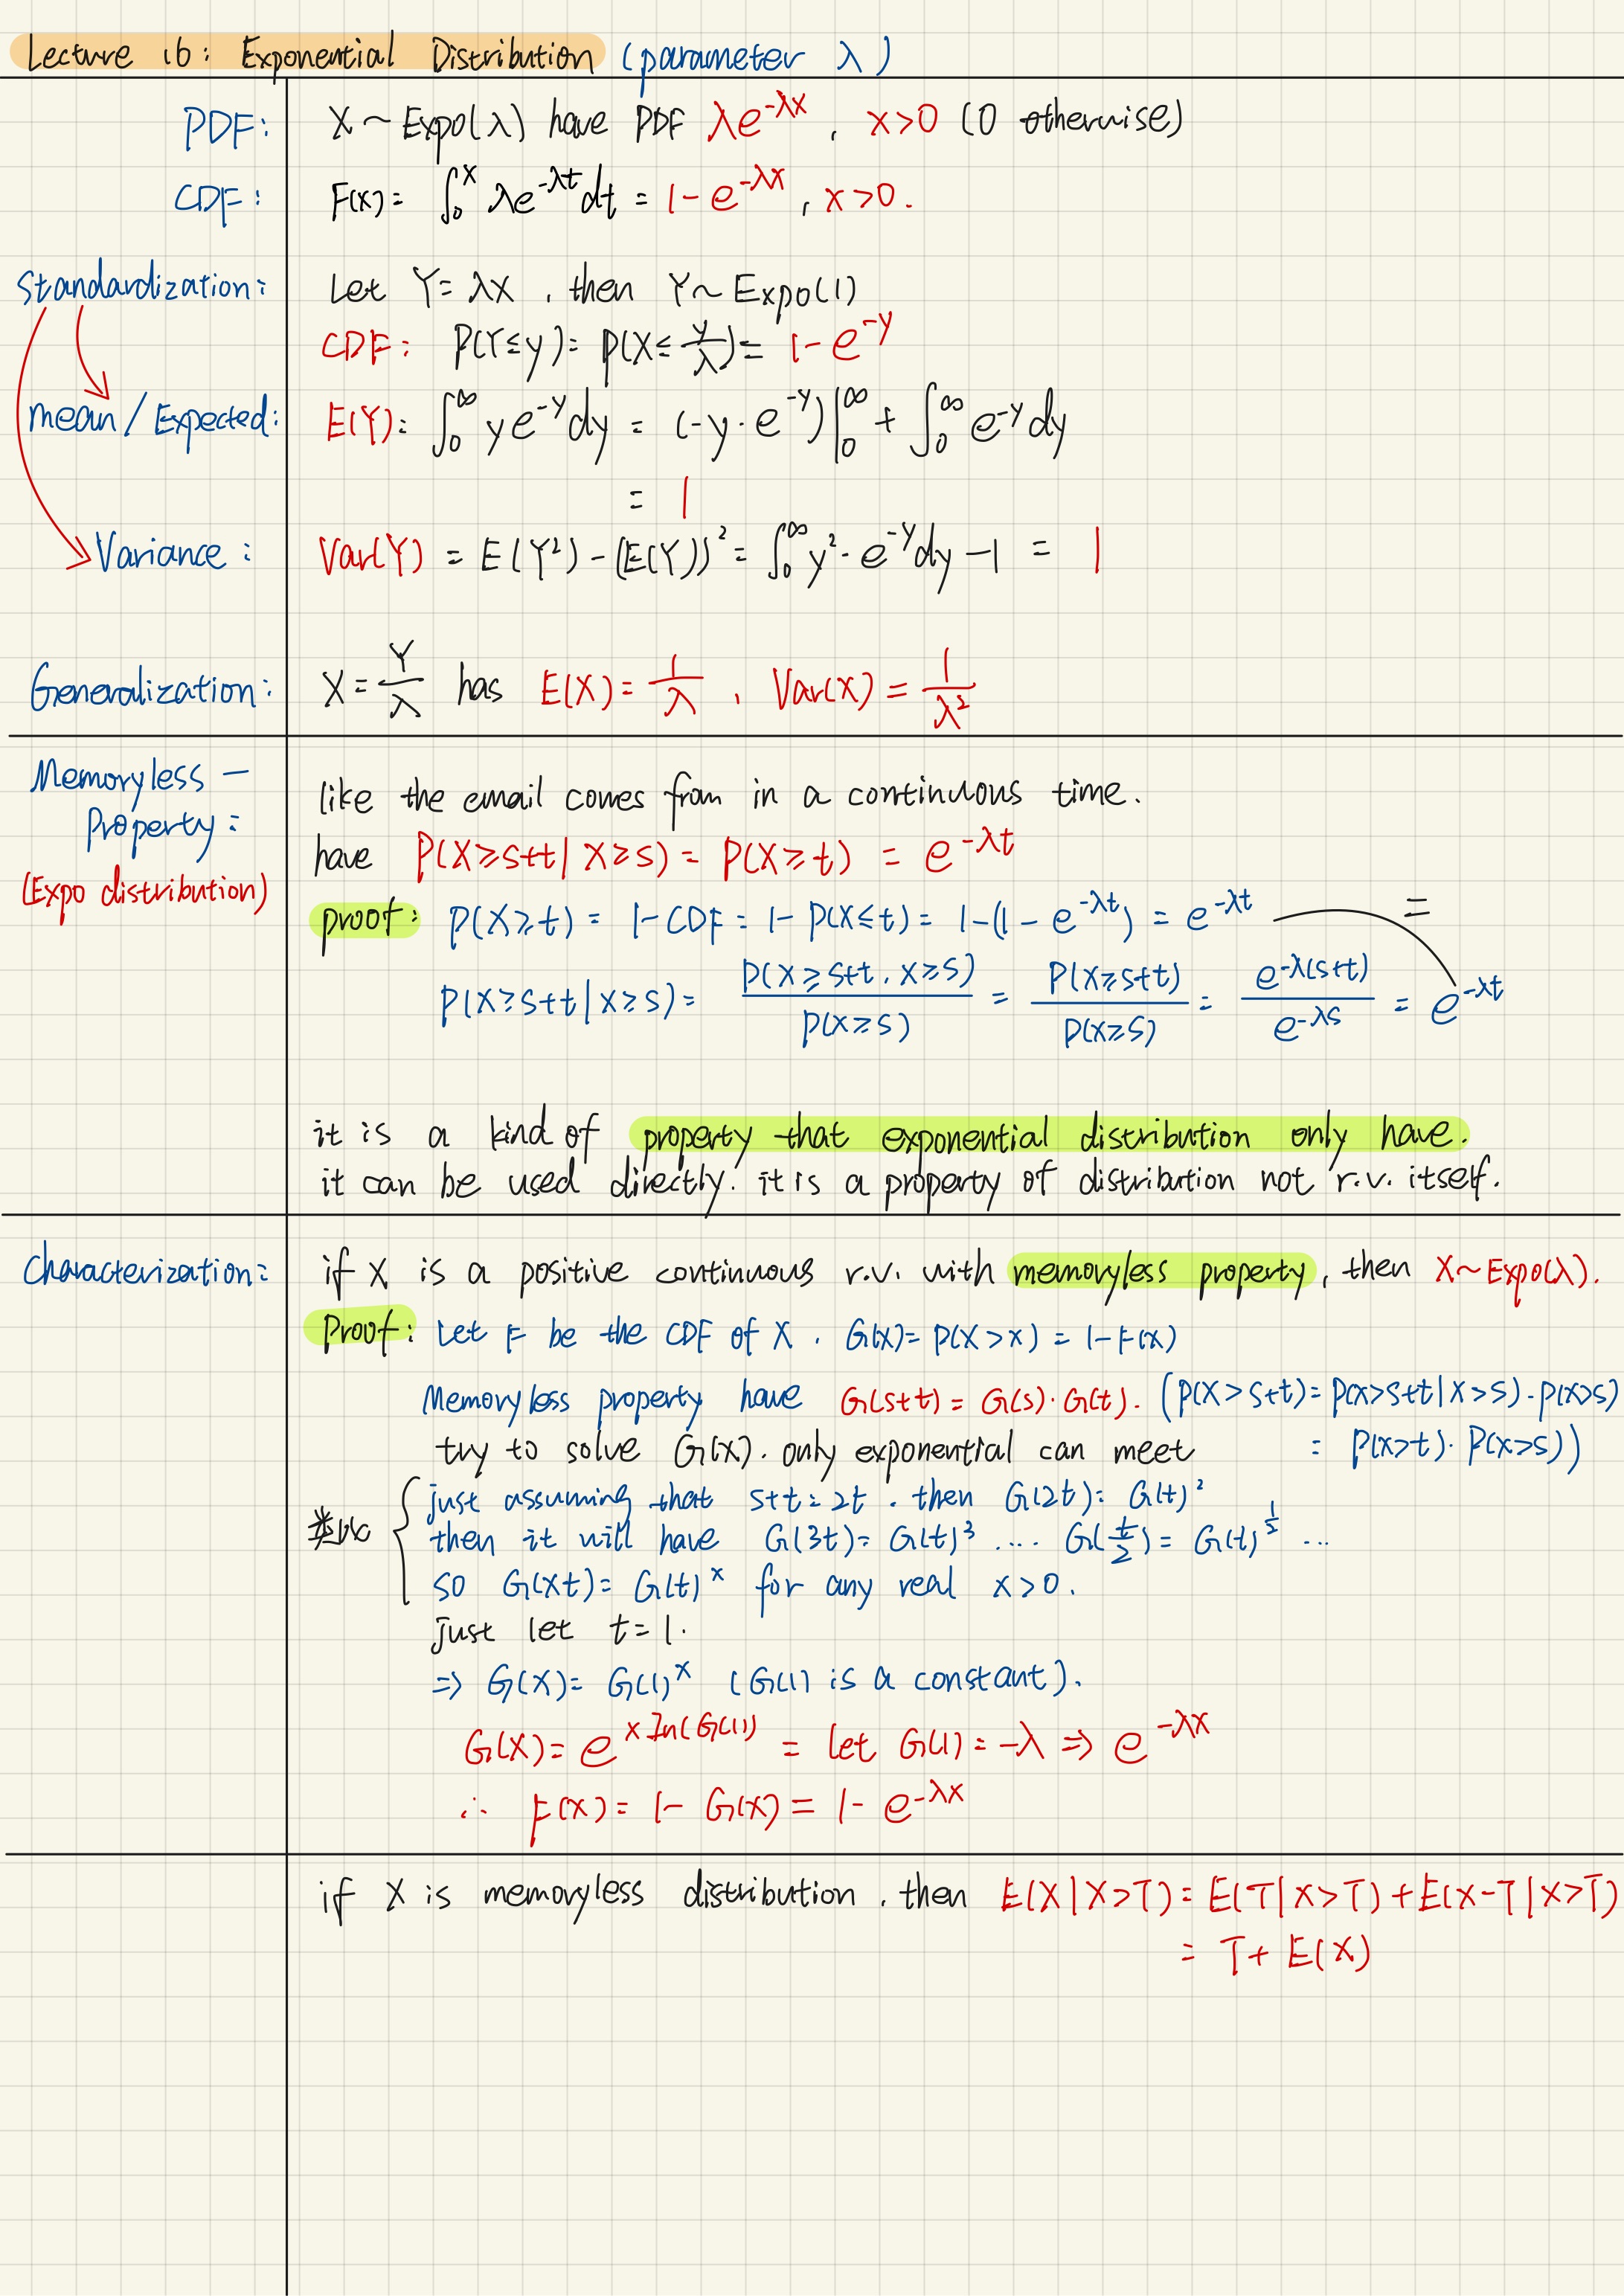 Lecture 16: Exponential Distribution (parameter λ)
PDF: X ~ Expo(λ) have PDF λe^{-λx}, x>0 (0 otherwise)
CDF: F(x) = ∫_0^x λe^{-λt}dt = 1-e^{-λx}, x>0.
Standardization: Let Y=λX, then Y~Expo(1)
CDF: P(Y≤y) = P(X≤y/λ) = 1-e^{-y}
mean/Expected: E(Y) = ∫_0^∞ ye^{-y}dy = (-y·e^{-y})|_0^∞ + ∫_0^∞ e^{-y}dy
= 1
Variance: Var(Y) = E(Y²)-(E(Y))² = ∫_0^∞ y²·e^{-y}dy-1 = 1
Generalization: X=Y/λ has E(X)=1/λ, Var(X)=1/λ²
Memoryless -
Property:
(Expo distribution)
like the email comes from in a continuous time.
have P(X≥s+t|X≥s) = P(X≥t) = e^{-λt}
proof: P(X≥t) = 1-CDF = 1-P(X≤t) = 1-(1-e^{-λt}) = e^{-λt} =
P(X≥s+t|X≥s) = P(X≥s+t, X≥s)/P(X≥s) = P(X≥s+t)/P(X≥s) = e^{-λ(s+t)}/e^{-λs} = e^{-λt}
it is a kind of property that exponential distribution only have.
it can be used directly. it is a property of distribution not r.v. itself.
Characterization: if X is a positive continuous r.v. with memoryless property, then X~Expo(λ).
Proof: Let F be the CDF of X. G(x)=P(X>x) = 1-F(x)
Memoryless property have G(s+t) = G(s)·G(t). (P(X>s+t)=P(X>s+t|X>s)·P(X>s)
try to solve G(x). only exponential can meet = P(X>t)·P(X>s))
类似 { just assuming that s+t=2t. then G(2t)=G(t)²
then it will have G(3t)=G(t)³ .... G(t/2)=G(t)^{1/2} ...
so G(xt)=G(t)^x for any real x>0.
just let t=1.
⇒ G(x)=G(1)^x (G(1) is a constant).
G(X)=e^{x ln(G(1))} = let G(1)=-λ ⇒ e^{-λx}
∴ F(x)=1-G(x)=1-e^{-λx}
if X is memoryless distribution, then E(X|X>T)=E(T|X>T)+E(X-T|X>T)
= T+E(X)